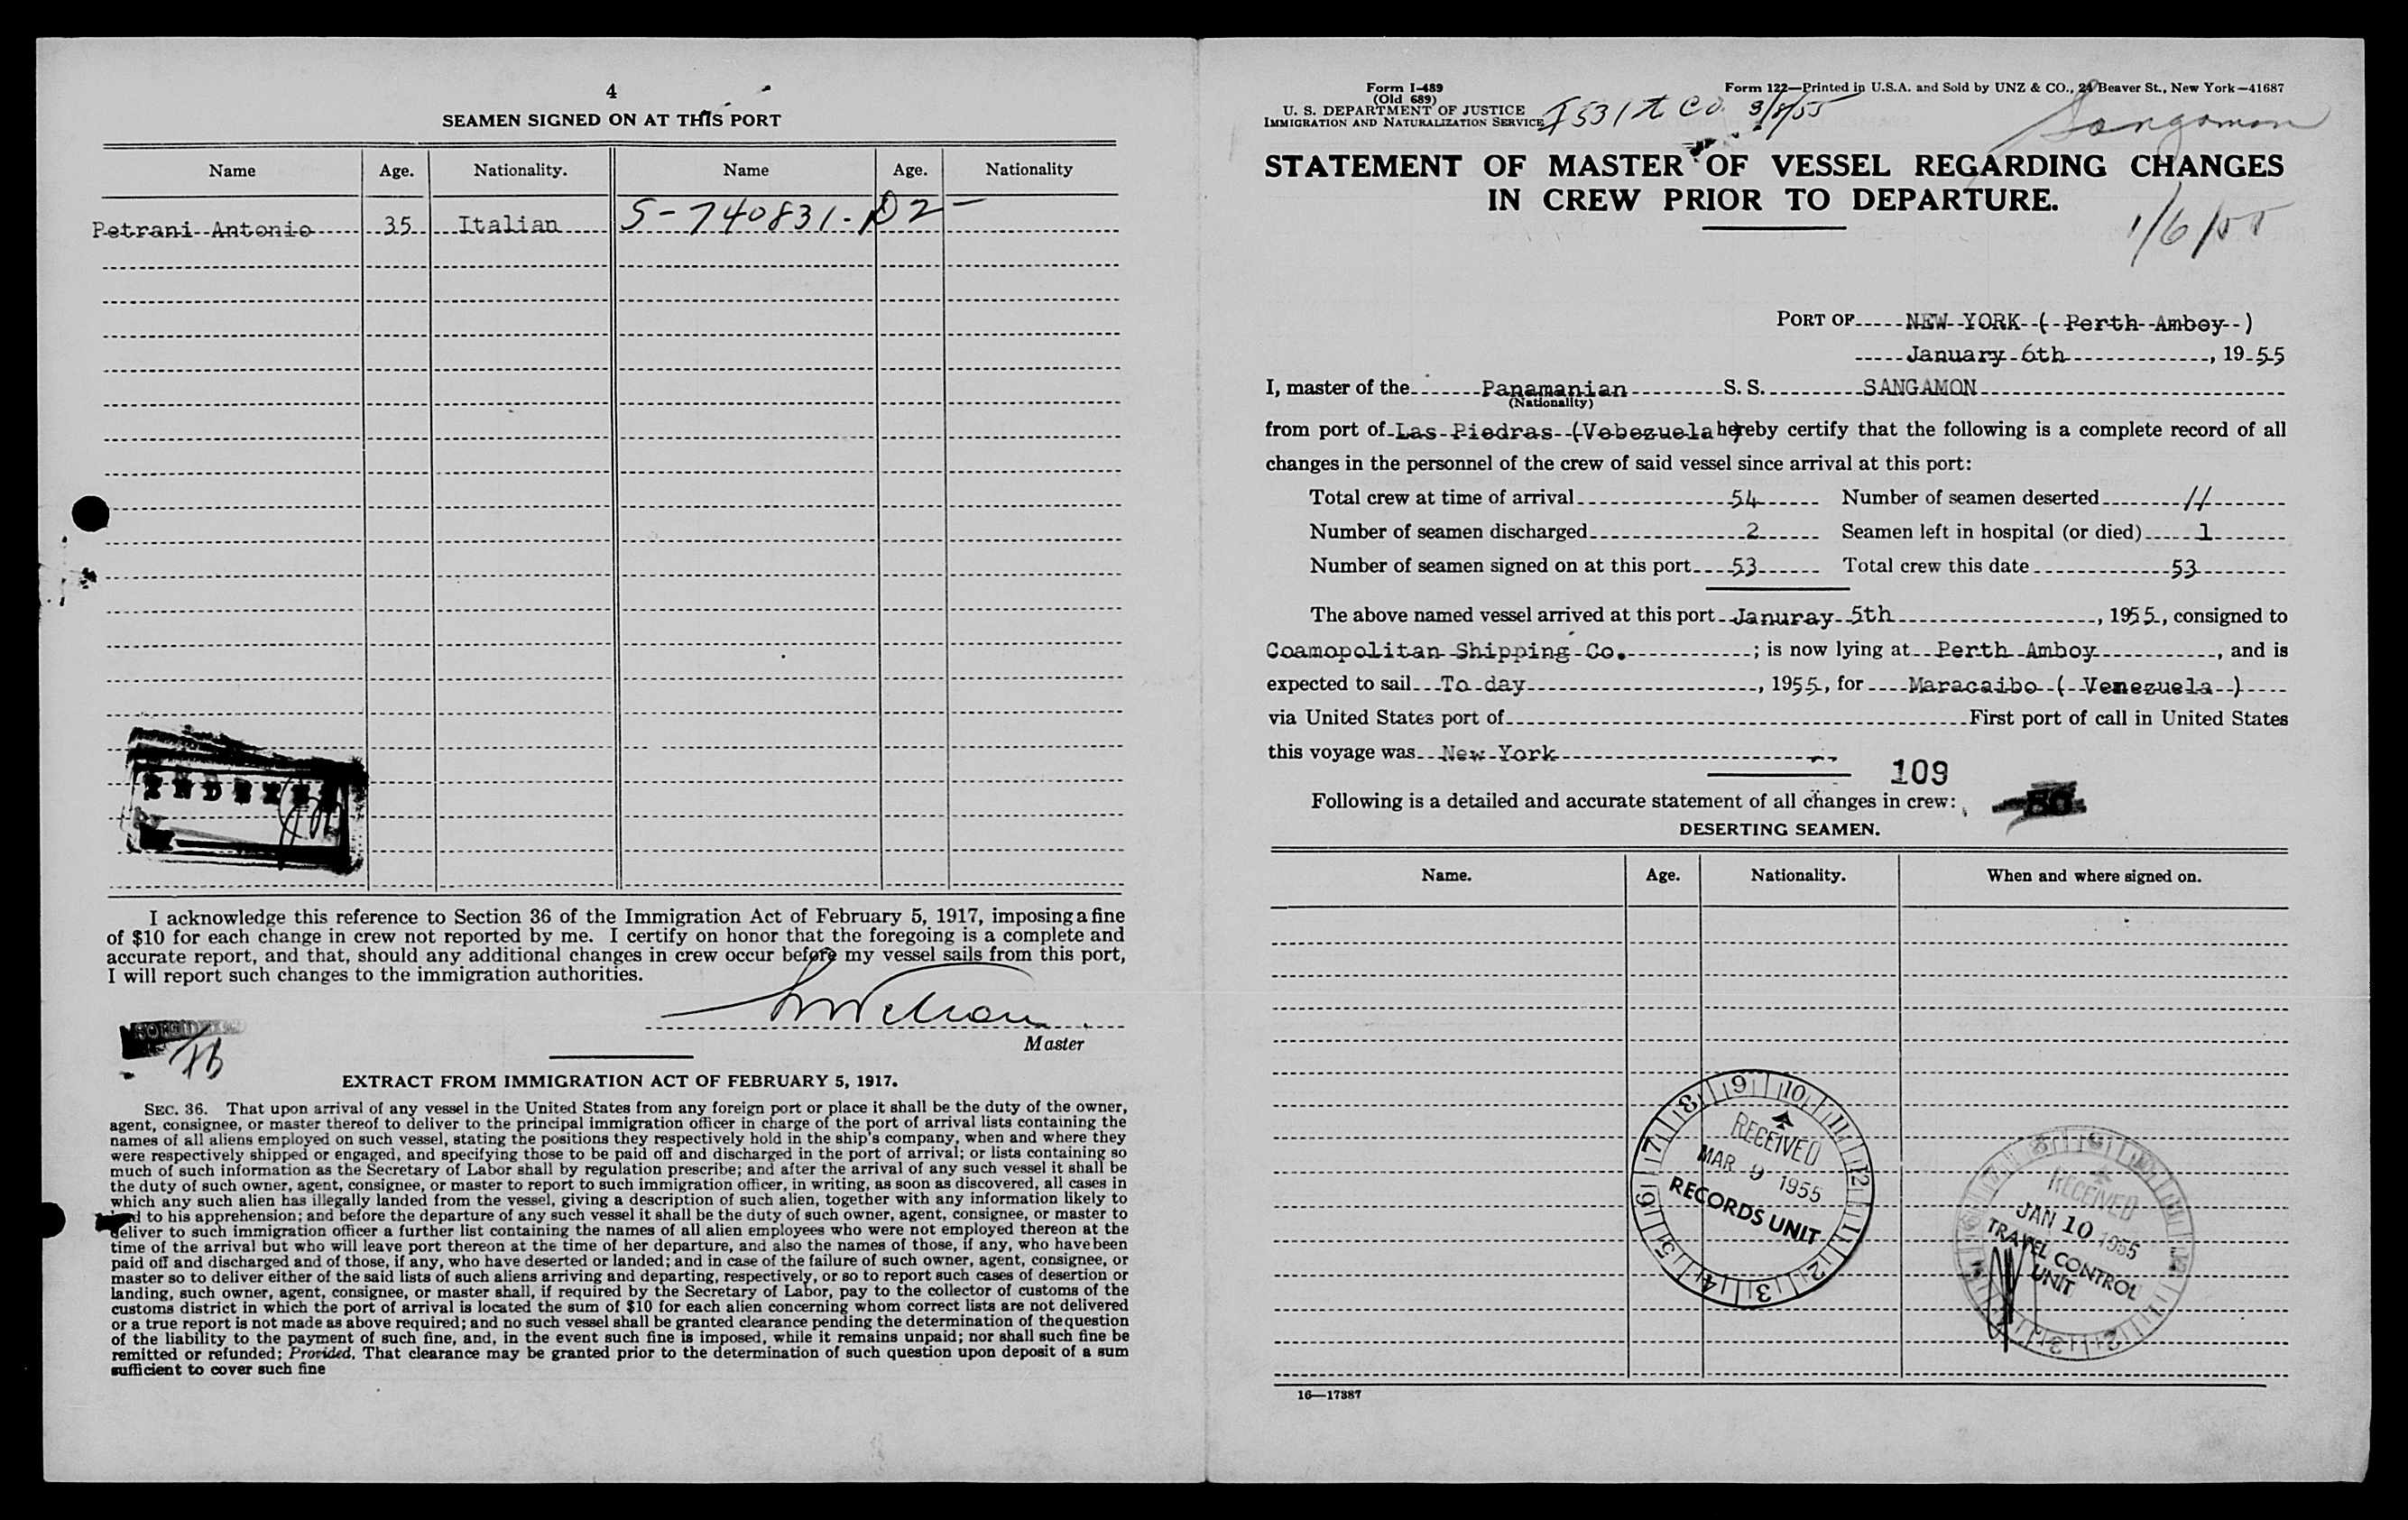 4
SEAMEN SIGNED ON AT THIS PORT
Name Age. Nationality. Name Age. Nationality
Petrani Antonio 35 Italian S-740831-D2-
I acknowledge this reference to Section 36 of the Immigration Act of February 5, 1917, imposing a fine
of $10 for each change in crew not reported by me. I certify on honor that the foregoing is a complete and
accurate report, and that, should any additional changes in crew occur before my vessel sails from this port,
I will report such changes to the immigration authorities.
Master
EXTRACT FROM IMMIGRATION ACT OF FEBRUARY 5, 1917.
SEC. 36. That upon arrival of any vessel in the United States from any foreign port or place it shall be the duty of the owner,
agent, consignee, or master thereof to deliver to the principal immigration officer in charge of the port of arrival lists containing the
names of all aliens employed on such vessel, stating the positions they respectively hold in the ship's company, when and where they
were respectively shipped or engaged, and specifying those to be paid off and discharged in the port of arrival; or lists containing so
much of such information as the Secretary of Labor shall by regulation prescribe; and after the arrival of any such vessel it shall be
the duty of such owner, agent, consignee, or master to report to such immigration officer, in writing, as soon as discovered, all cases in
which any such alien has illegally landed from the vessel, giving a description of such alien, together with any information likely to
to his apprehension; and before the departure of any such vessel it shall be the duty of such owner, agent, consignee, or master to
deliver to such immigration officer a further list containing the names of all alien employees who were not employed thereon at the
time of the arrival but who will leave port thereon at the time of her departure, and also the names of those, if any, who have been
paid off and discharged and of those, if any, who have deserted or landed; and in case of the failure of such owner, agent, consignee, or
master so to deliver either of the said lists of such aliens arriving and departing, respectively, or so to report such cases of desertion or
landing, such owner, agent, consignee, or master shall, if required by the Secretary of Labor, pay to the collector of customs of the
customs district in which the port of arrival is located the sum of $10 for each alien concerning whom correct lists are not delivered
or a true report is not made as above required; and no such vessel shall be granted clearance pending the determination of the question
of the liability to the payment of such fine, and, in the event such fine is imposed, while it remains unpaid; nor shall such fine be
remitted or refunded; Provided, That clearance may be granted prior to the determination of such question upon deposit of a sum
sufficient to cover such fine
Form I-489
(Old 689)
U. S. DEPARTMENT OF JUSTICE
IMMIGRATION AND NATURALIZATION SERVICE
Form 122—Printed in U.S.A. and Sold by UNZ & CO., 24 Beaver St., New York—41687
3/8/55
Sangamon
STATEMENT OF MASTER OF VESSEL REGARDING CHANGES
IN CREW PRIOR TO DEPARTURE.
1/6/55
PORT OF NEW YORK ( Perth Amboy )
January 6th, 1955
I, master of the Panamanian S. S. SANGAMON
(Nationality)
from port of Las Piedras (Vebezuela) hereby certify that the following is a complete record of all
changes in the personnel of the crew of said vessel since arrival at this port:
Total crew at time of arrival 54 Number of seamen deserted //
Number of seamen discharged 2 Seamen left in hospital (or died) 1
Number of seamen signed on at this port 53 Total crew this date 53
The above named vessel arrived at this port Januray 5th, 1955, consigned to
Coamopolitan Shipping Co.; is now lying at Perth Amboy, and is
expected to sail To day, 1955, for Maracaibo ( Venezuela )
via United States port of First port of call in United States
this voyage was New York
109
Following is a detailed and accurate statement of all changes in crew:
DESERTING SEAMEN.
Name. Age. Nationality. When and where signed on.
RECEIVED
MAR 9 1955
RECORDS UNIT
RECEIVED
JAN 10 1955
TRAVEL CONTROL
UNIT
16—17387